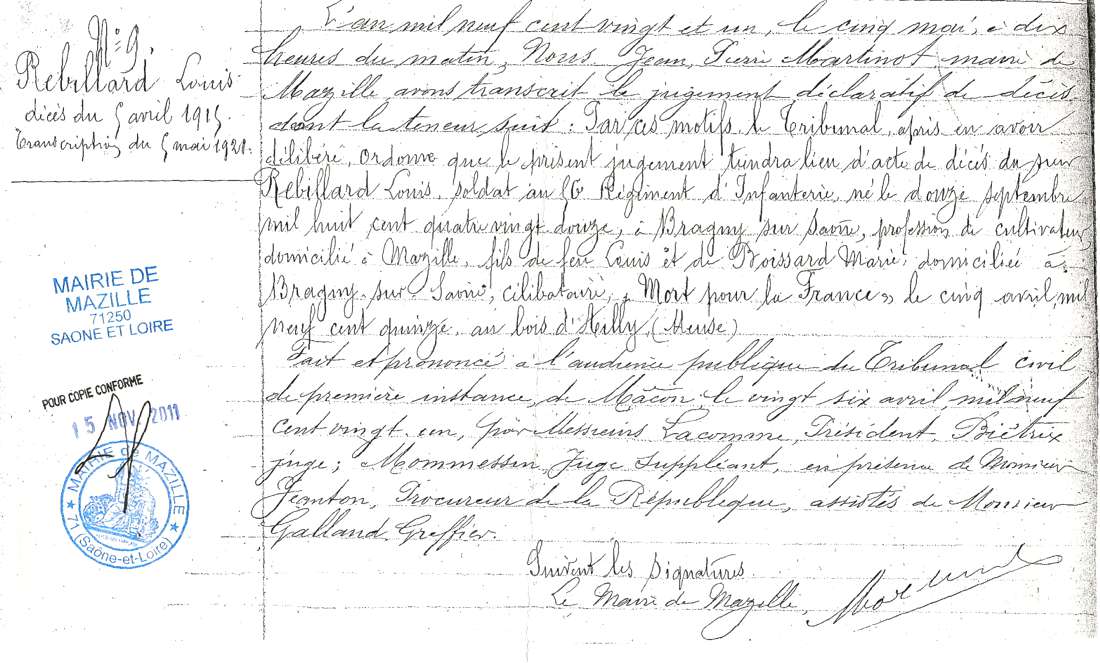 N° 9.
Rebillard Louis
décès du 5 avril 1915.
Transcription du 5 mai 1921.
L'an mil neuf cent vingt et un, le cinq mai, à dix
heures du matin, Nous Jean, Pierre Martinot maire de
Mazille avons transcrit le jugement déclaratif de décès
dont la teneur suit : Par ces motifs, le Tribunal, après en avoir
délibéré, ordonne que le présent jugement tiendra lieu d'acte de décès du sieur
Rebillard Louis, soldat au 16e Régiment d'Infanterie, né le douze septembre
mil huit cent quatre vingt douze, à Bragny sur Saône, profession de cultivateur,
domicilié à Mazille, fils de feu Louis et de Boissard Marie, domiciliée à
Bragny-sur-Saône, célibataire, « Mort pour la France », le cinq avril, mil
neuf cent quinze, au bois d'Ailly, (Meuse)
Fait et prononcé à l'audience publique du Tribunal civil
de première instance, de Mâcon le vingt six avril, mil neuf
cent vingt un, par Messieurs Lacomme, Président, Biétrix
juge; Mommessin, Juge suppléant, en présence de Monsieur
Jeanton, Procureur de la République, assistés de Monsieur
Galland Greffier.
Suivent les signatures
Le Maire de Mazille,
MAIRIE DE
MAZILLE
71250
SAONE ET LOIRE
POUR COPIE CONFORME
15 NOV. 2011
★ MAIRIE DE MAZILLE ★
71 (Saône-et-Loire)